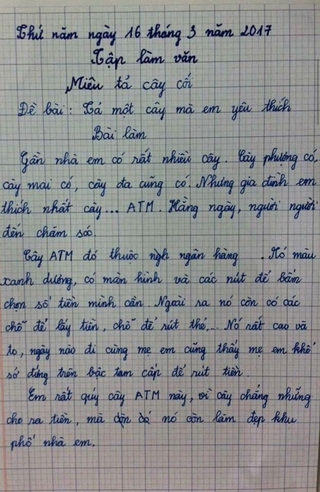 Thứ năm ngày 16 tháng 3 năm 2017
Tập làm văn
Miêu tả cây cối
Đề bài: Tả một cây mà em yêu thích
Bài làm
Gần nhà em có rất nhiều cây. Cây phượng có,
cây mai có, cây đa cũng có. Nhưng gia đình em
thích nhất cây... ATM. Hằng ngày, người người
đến chăm sóc.
Cây ATM đó thuộc ngân hàng . Nó màu
xanh dương, có màn hình và các nút để bấm
chọn số tiền mình cần. Ngoài ra nó còn có các
chỗ để lấy tiền, chỗ để rút thẻ,... Nó rất cao và
to, ngày nào đi cùng mẹ em cũng thấy mẹ em khổ
sở đứng trên bậc tam cấp để rút tiền.
Em rất quý cây ATM này, vì cây chẳng những
cho ra tiền, mà nó còn làm đẹp khu
phố nhà em.